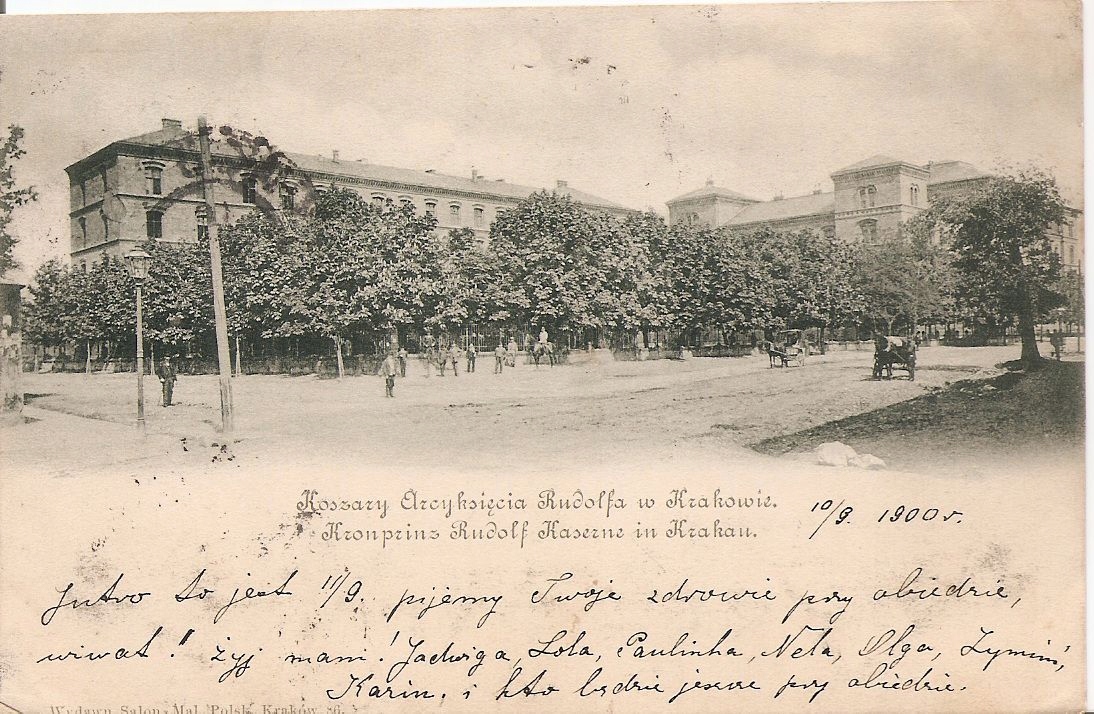 Koszary Arcyksięcia Rudolfa w Krakowie.
Kronprinz Rudolf Kaserne in Krakau.
10/9. 1900 r.
Jutro to jest 11/9. pijemy Twoje zdrowie przy obiedzie,
wiwat! żyj nam! Jadwiga, Lola, Paulinka, Nela, Olga,
Karin. i kto będzie jeszcze przy obiedzie.
Wydawn. Salon. Mal. Polsk. Kraków